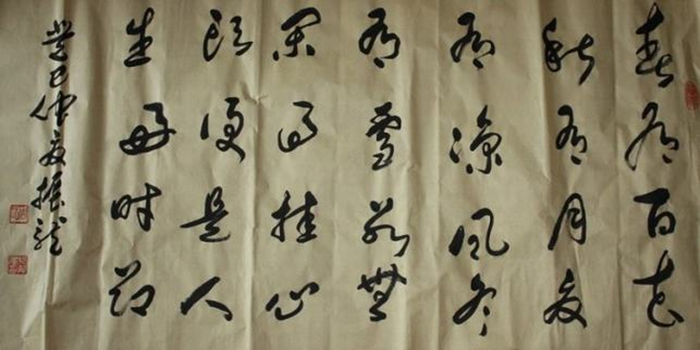 春有百花
秋有月夏
有凉风冬
有雪若無
闲事挂心
头便是人
生好时节
癸巳仲夏振龙